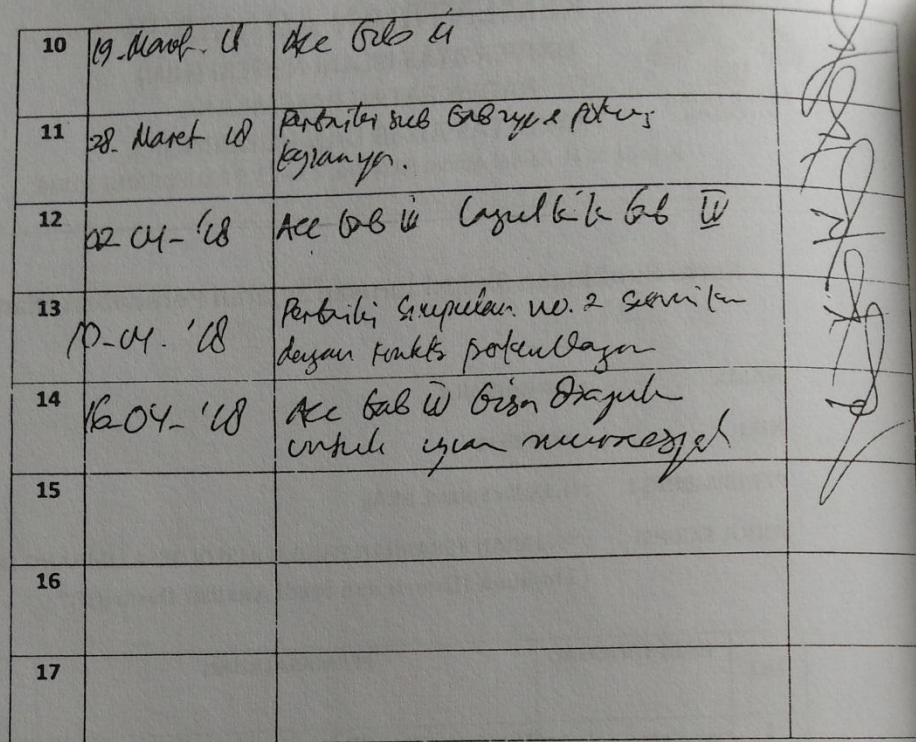 10 19. Maret. 18 Acc Bab ii
11 28. Maret 18 Perbaiki sub Babnya fokus
kajianya.
12 02 04- '18 Acc Bab iii Lanjut ke Bab IV
13 10-04. '18 Perbaiki simpulan no. 2 sesuaikan
dengan
14 16-04- '18 Acc Bab IV Bisa diajukan
untuk ujian munaqasyah
15
16
17